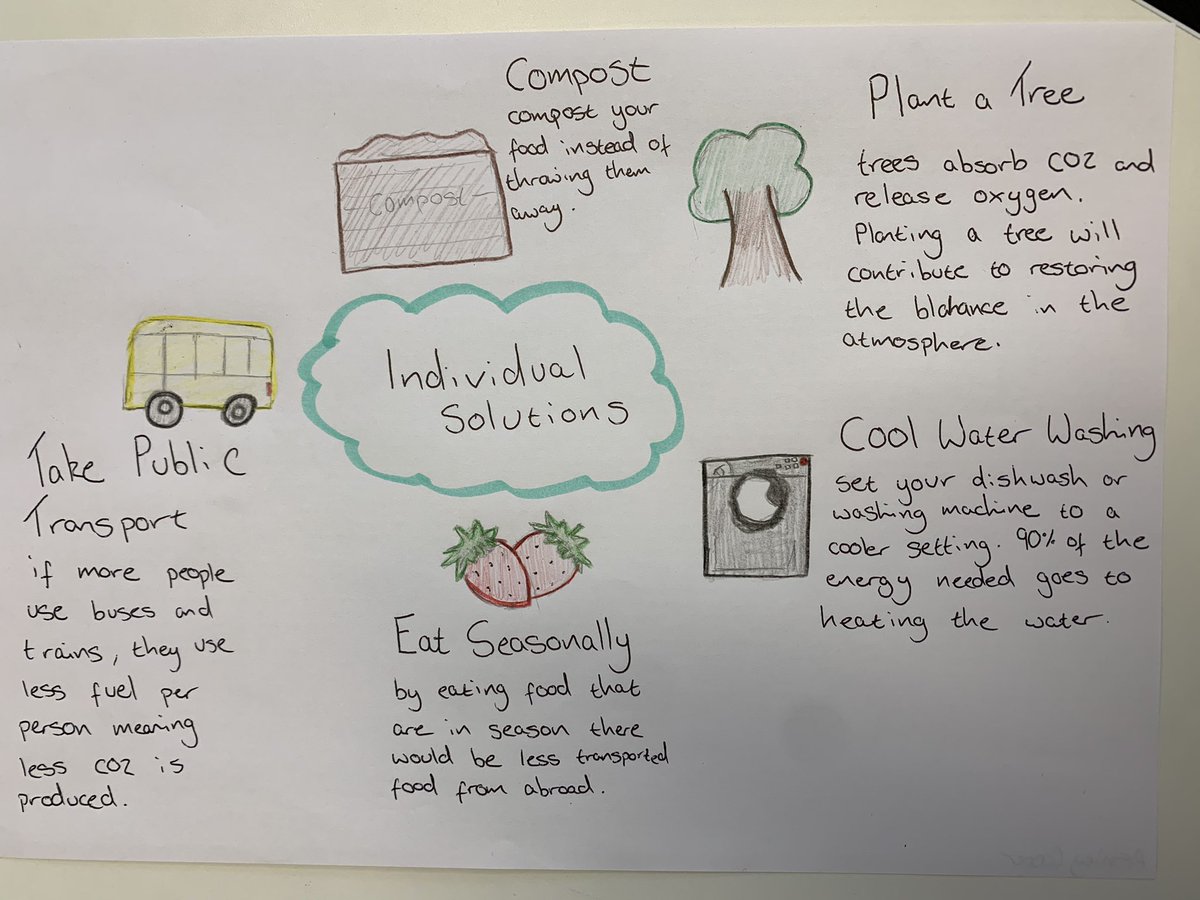 Individual
Solutions
Compost
compost your
food instead of
throwing them
away.
Compost
Plant a Tree
trees absorb CO2 and
release oxygen.
Planting a tree will
contribute to restoring
the blahance in the
atmosphere.
Cool Water Washing
set your dishwash or
washing machine to a
cooler setting. 90% of the
energy needed goes to
heating the water.
Eat Seasonally
by eating food that
are in season there
would be less transported
food from abroad.
Take Public
Transport
if more people
use buses and
trains, they use
less fuel per
person meaning
less CO2 is
produced.